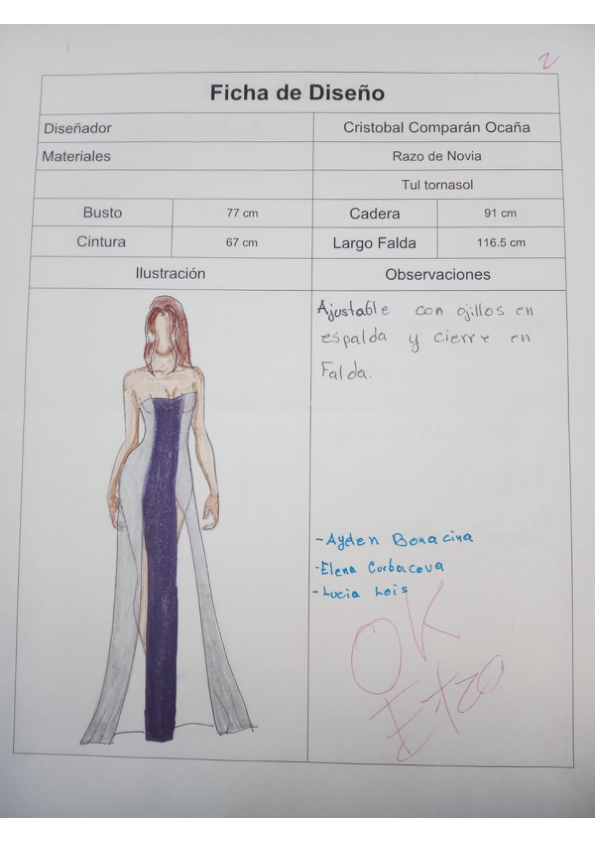 2
Ficha de Diseño
Diseñador Cristobal Comparán Ocaña
Materiales Razo de Novia
Tul tornasol
Busto 77 cm Cadera 91 cm
Cintura 67 cm Largo Falda 116.5 cm
Ilustración Observaciones
Ajustable con ojillos en
espalda y cierre en
Falda.
-Ayden Bonacina
-Elena Corbacova
-Lucia Lois
OK